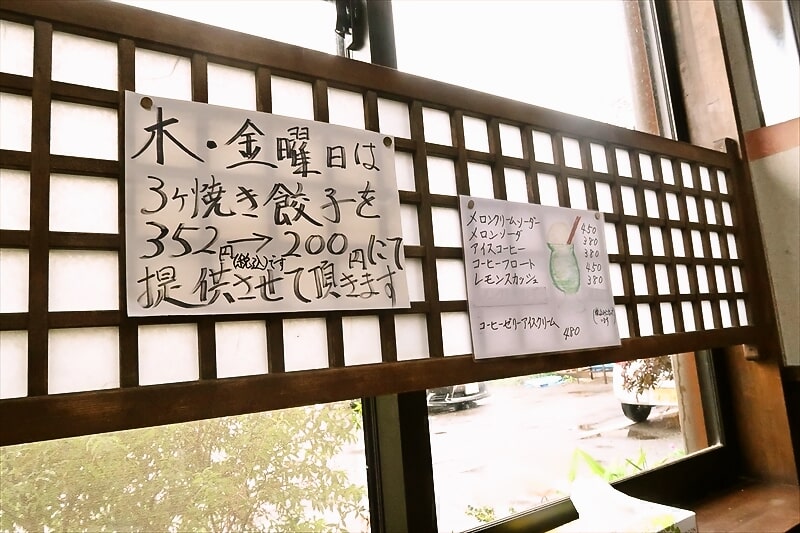 木・金曜日は
3ヶ焼き餃子を
352円(税込)です→200円にて
提供させて頂きます
メロンクリームソーダー 450
メロンソーダ 380
アイスコーヒー 380
コーヒーフロート 450
レモンスカッシュ 380
コーヒーゼリーアイスクリーム 480